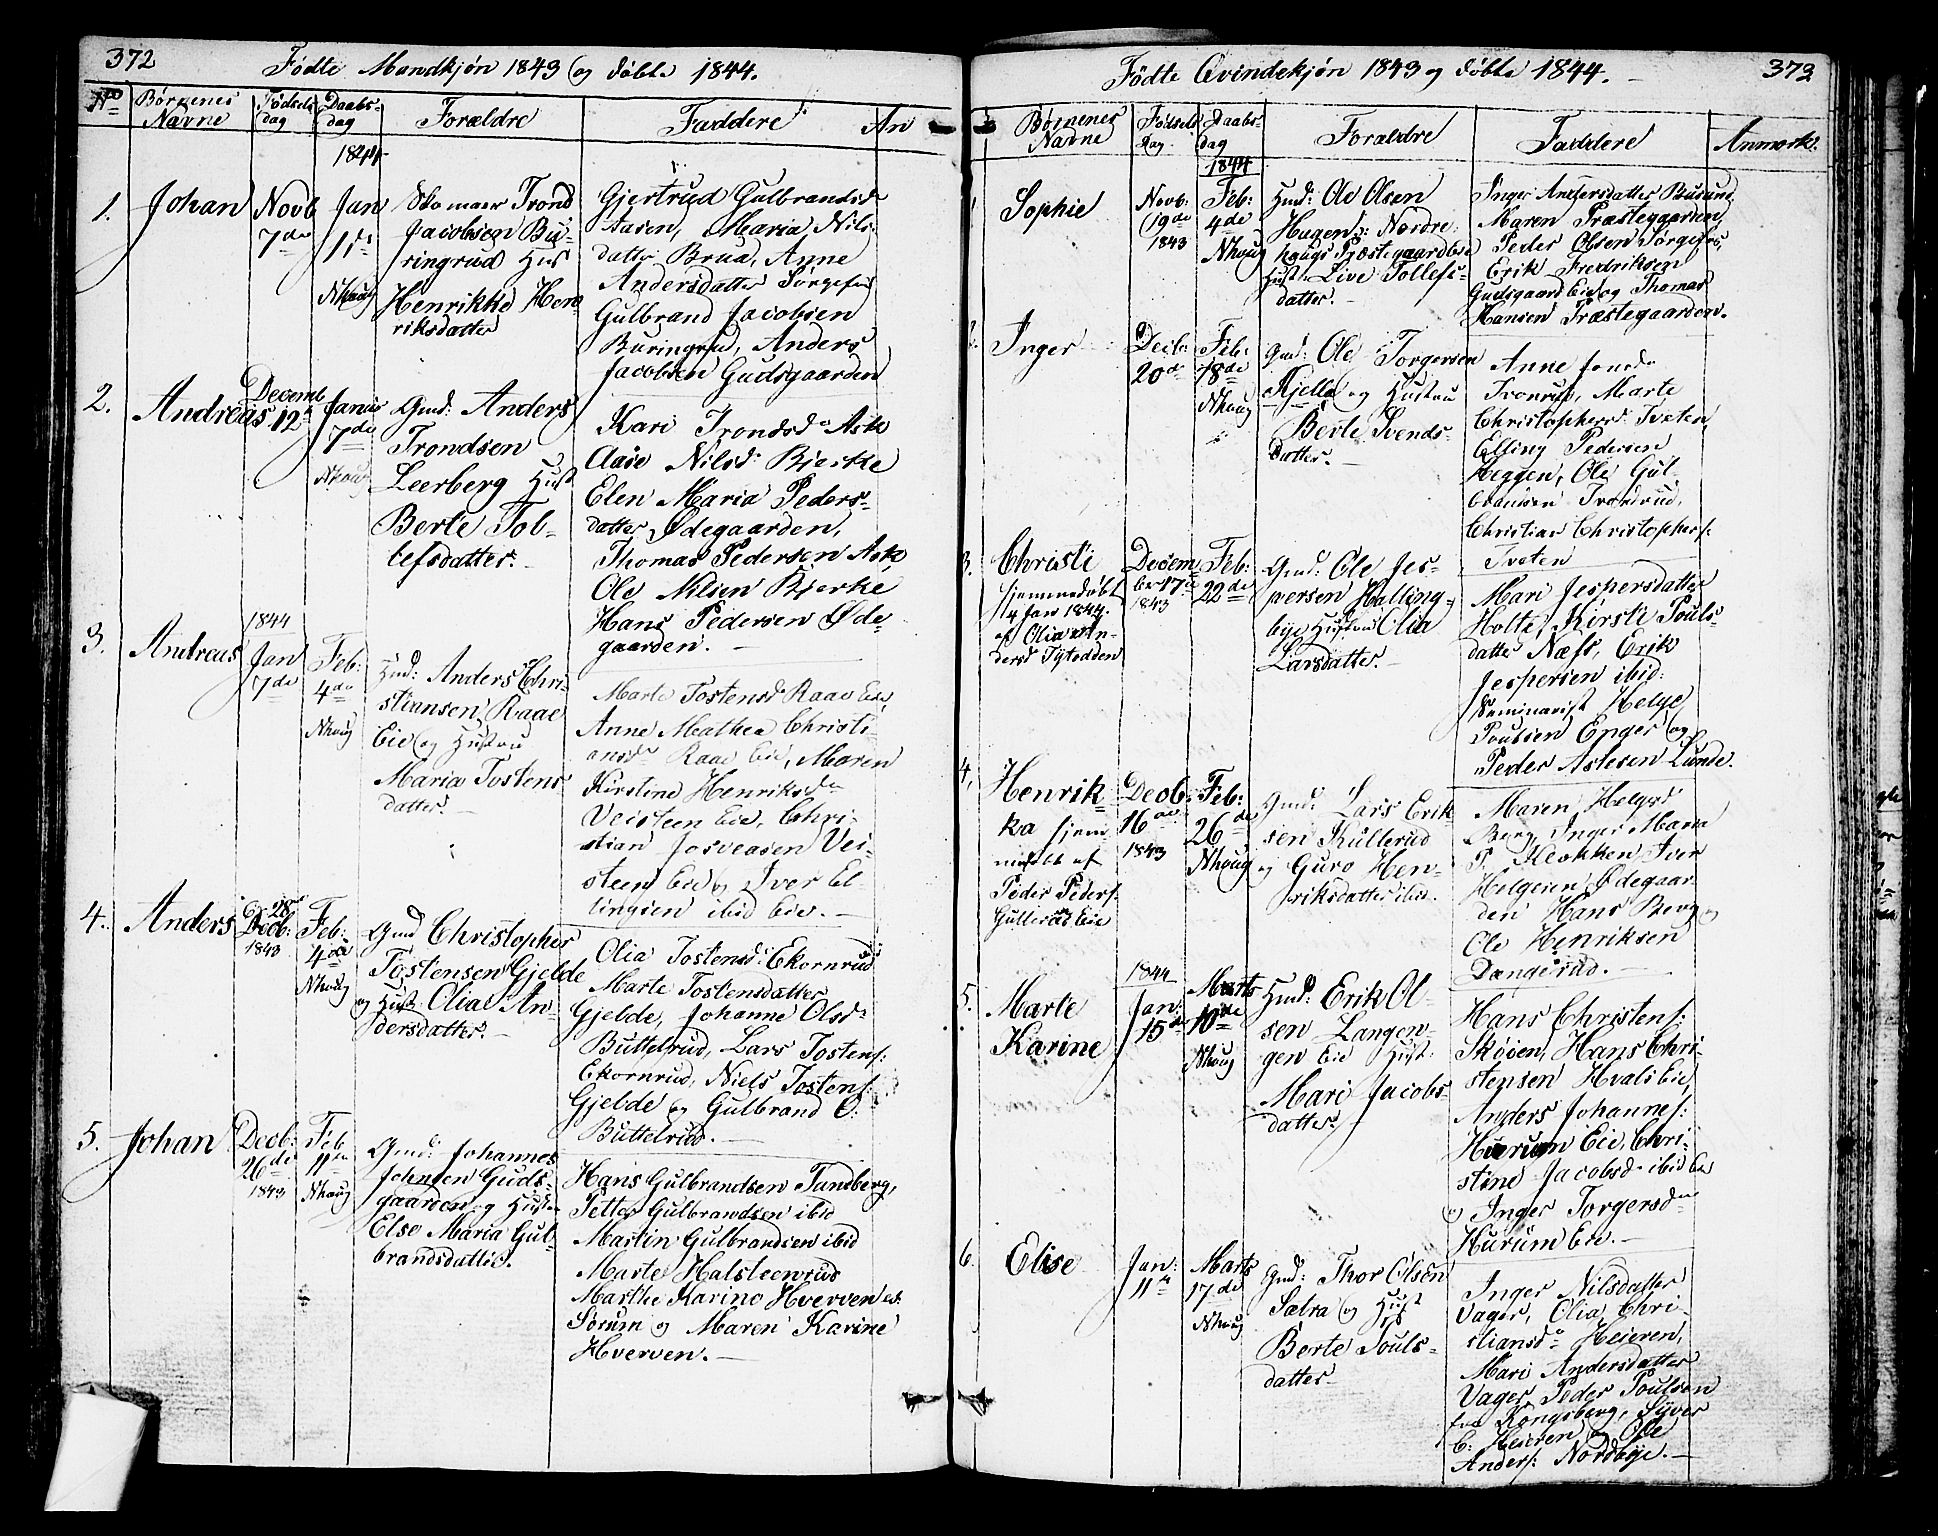 372
Födte Mandkjön 1843 og döbte 1844.
No
Börnenes Navne
Födsels dag
Daabs-dag
Forældre
Faddere
An
1844
1.
Johan
Novb 7de
Jan 11te
Nhoug
Skomager Trond
Jacobsen Bu-
ringrud Hust
Henrikke Hen-
riksdatter
Gjertrud Gulbrandsd
Aasen, Maria Nils-
datter Brua, Anne
Andersdatter Sørgefos
Gulbrand Jacobsen
Buringrud, Anders
Jacobsen Gudsgaarden
2.
Andreas
Decemb 12te
Januar 7de
Nhoug
Gmd: Anders
Trondsen
Leerberg Hust
Berte Tol-
lefsdatter.
Kari Trondsd Ask
Aase Nilsd: Bjerke
Elen Maria Peders-
datter Ødegaarden,
Thomas Pedersen Ask
Ole Nilsen Bjerke
Hans Pedersen Øde-
gaarden.
3.
Andreas
1844
Jan 7de
Feb: 4de
Nhoug
Hmd: Anders Chri-
stiansen Raae
Eie og Hustru
Maria Tostens
datter.
Marte Tostensd Raae Eie,
Anne Mathea Christi-
ansd Raae Eie, Maren
Kirstine Henriksd
Veisteen Eie, Chri-
stian Vei-
steen Eie og Iver El-
lingsen ibid Eie.
4.
Anders
28
Decb: 1843
Feb: 4de
Nhoug
Gmd Christopher
Tostensen Gjelde
og Hust: Olia An-
dersdatter.
Olia Tostensd: Ekornrud
Marte Tostensdatter
Gjelde, Johanne Olsd
Buttelrud, Lars Tostens:
Ekornrud, Niels Tostens:
Gjelde og Gulbrand O:
Buttelrud.
5.
Johan
Decb: 26de 1843
Feb 11te
Nhoug
Gmd: Johannes
Johnsen Guds-
gaarden og Hust
Else Maria Gul-
brandsdatter.
Hans Gulbrandsen Tandberg,
Petter Gulbrandsen ibid
Martin Gulbrandsen ibid
Marte Halsteenrud
Marthe Karine Hverven
Sørum og Maren Karine
Hverven.
373
Födte Qvindekjön 1843 og döbte 1844.
Börnenes Navne
Födsels Dag
Daabs-dag
Forældre
Faddere
Anmærk:
1844
1
Sophie
Novb: 19de 1843
Feb: 4de
Nhoug
Hmd: Ole Olsen
Haugen: Nordre-
hougs Præstegaard Eie
Hust: Live Tollefs-
datter.
Inger Andersdatter Busund
Maren Præstegaarden
Peder Olsen Sørgefos,
Erik Fredriksen
Gudsgaard Eie og Thomas
Hansen Præstegaarden.
2.
Inger
Decb: 20de
Feb: 18de
Nhoug
Gmd: Ole Torgersen
Kjelle og Hustru
Berte Svends-
datter.
Anne
Marte
Christophersd Tveten,
Elling Pedersen
Heggen, Ole Gul-
brandsen
Christian Christophers:
Tveten
3.
Christi
hjemmedöbt
14 Jan 1844
af Olia An-
dersd
Decem-
ber 17de
1843
Feb: 22de
Gmd: Ole Jes-
persen Halling-
bye Hustru Olia
Larsdatter.
Mari Jespersdatter
Holte, Kirsti Pouls-
datter Næss, Erik
Jespersen ibid:
Seminarist Helge
Poulsen Enger og
Peder Aslesen Lunde.
4.
Henrik-
ka hjem
medöbt af
Peder Peders:
Gullerud Eie
Decb: 16de 1843
Feb: 26de
Nhoug
Gmd: Lars Erik-
sen Kullerud
og Guro Hen-
riksdatter ibid.
Maren Helgesd
Berg, Inger Maria
P. Klokken, Iver
Helgesen Ødegaar-
den Hans Berg og
Ole Henriksen
Dangerud.
5.
Marte
Karine
1844
Jan: 15de
Marts 10de
Nhoug
Hmd: Erik Ol-
sen Langen-
gen Eie Hust:
Mari Jacobs-
datter
Hans Christens:
Skøien, Hans Chri-
stensen Hvals Eie,
Anders Johannes:
Hurum Eie, Chri-
stine Jacobsd ibid Eie
og Inger Torgersd
Hurum Eie.
6.
Elise
Jan: 11te
Marts 17de
Nhoug
Gmd: Thor Olsen
Sætra og Hust
Berte Pouls-
datter
Inger Nilsdatter
Vager, Olia Chri-
stiansd Heieren,
Mari Andersdatter
Vager, Peder Poulsen
fra Kongsberg, Syver
C: Heieren og Ole
Anders: Norderhje.